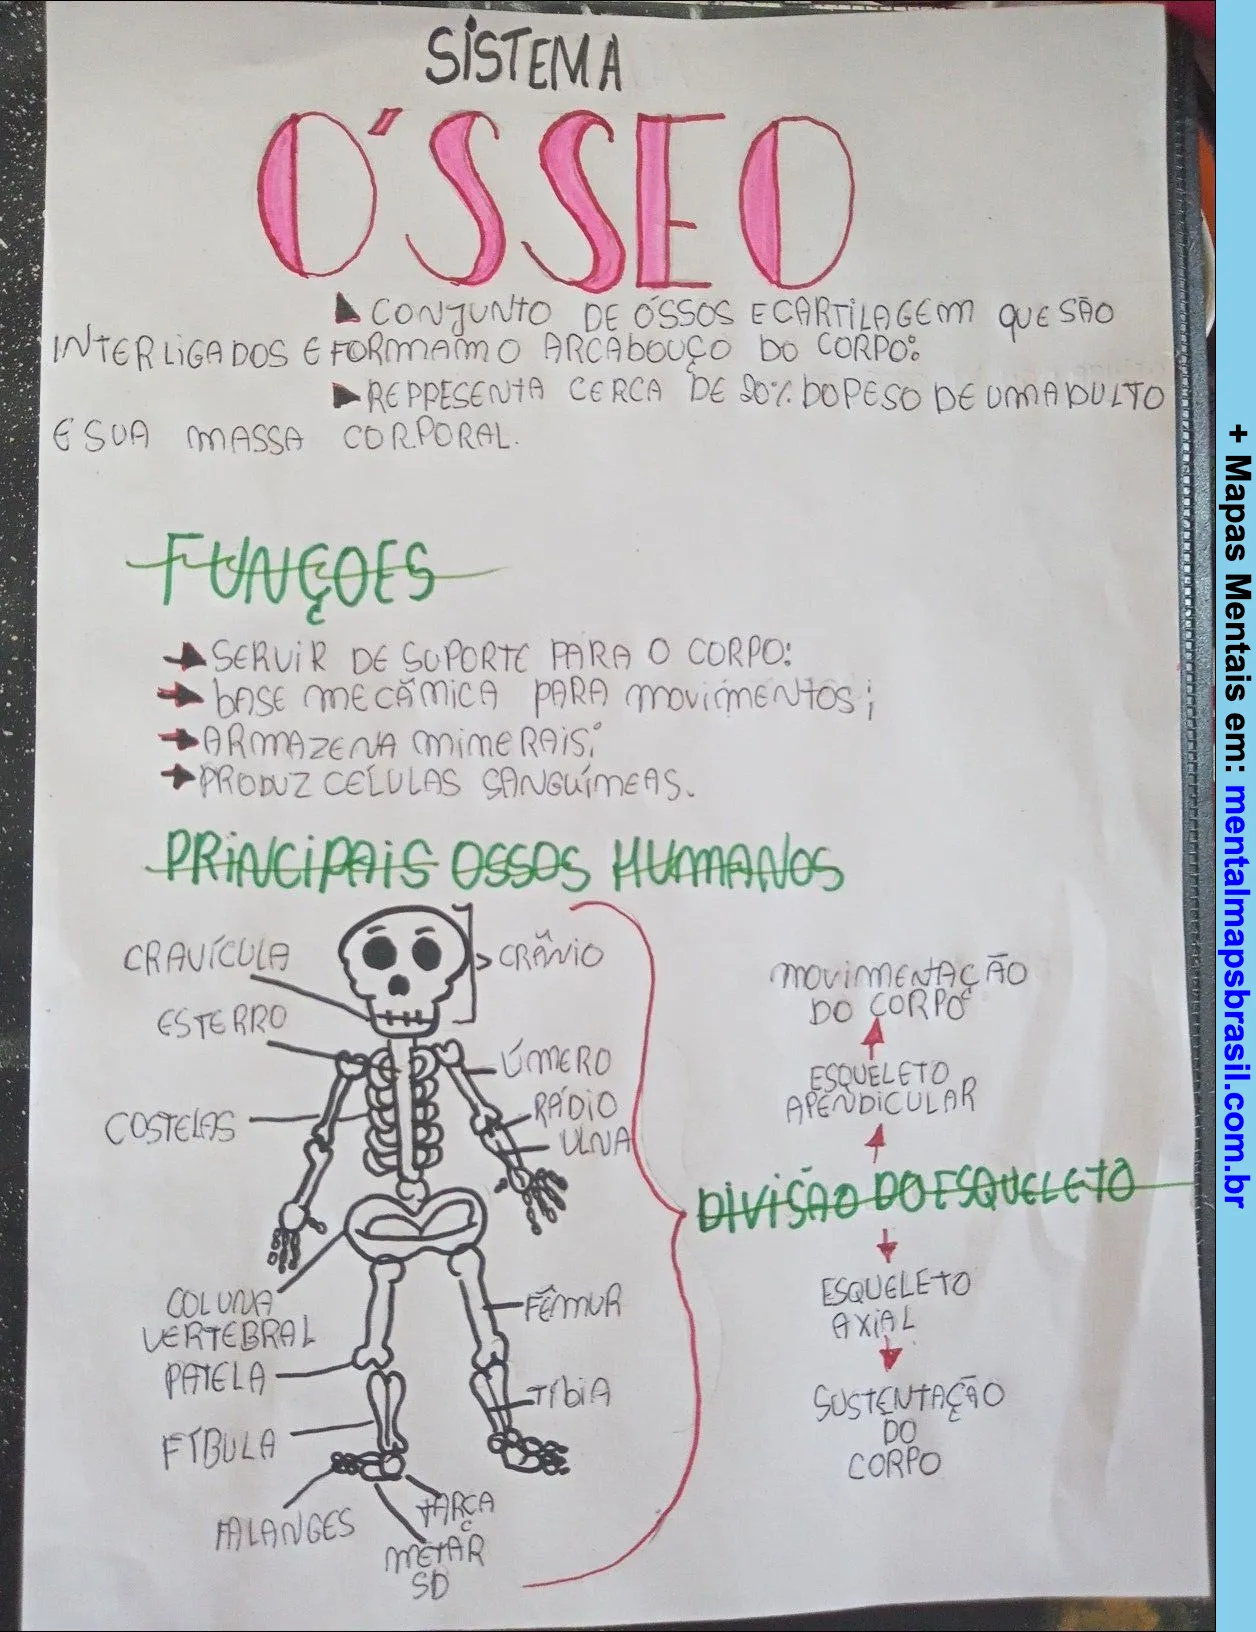 SISTEMA
ÓSSEO
CONJUNTO DE ÓSSOS E CARTILAGEM QUE SÃO
INTERLIGADOS E FORMAM O ARCABOUÇO DO CORPO:
REPPESENTA CERCA DE 20% DO PESO DE UM ADULTO
E SUA MASSA CORPORAL.
FUNÇOES
SERVIR DE SUPORTE PARA O CORPO:
BASE MECÂMICA PARA MOVIMENTOS;
ARMAZENA MIMERAIS;
PRODUZ CELÚLAS SANGUÍMEAS.
PRINCIPAIS OSSOS HUMANOS
CRAVÍCULA
CRÂNIO
ESTERRO
ÚMERO
RÁDIO
COSTELAS
ULNA
COLUNA
VERTEBRAL
FÊMUR
PATELA
TÍBIA
FÍBULA
FALANGES
TARÇA
METAR
SO
MOVIMENTAÇÃO
DO CORPO
ESQUELETO
APENDICULAR
DIVISÃO DO ESQUELETO
ESQUELETO
AXIAL
SUSTENTAÇÃO
DO
CORPO
+ Mapas Mentais em: mentalmapsbrasil.com.br